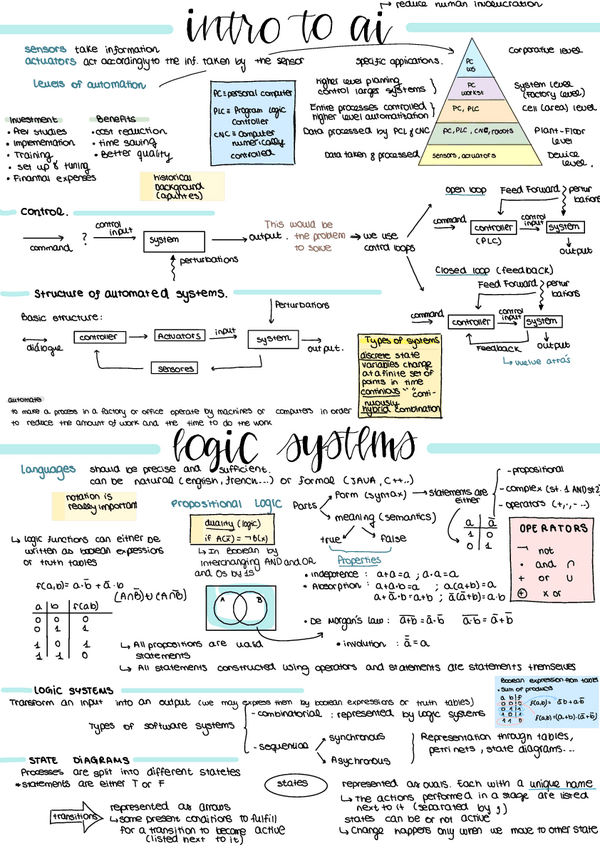 ↳ reduce human involucration
intro to ai
sensors take information
actuators act accordingly to the inf. taken by the sensor
Levels of automation
specific applications.
Higher level planning
control larger systems
Entire processes controlled
higher level automatisation
Data processed by PCL & CNC
Data taken & processed
PC
WS
PC
WORKST
PC, PLC
PC, PLC, CNC, robots
sensors, actuators
Corporative level
System level
(Factory level)
Cell (area) level
Plant-Floor
level
Device
level.
PC = personal computer
PLC = Program logic
controller
CNC = Computer
numerically
controlled
Investment
• Prev studies
• Implementation
• Training
• set up & tuning
• Financial expenses
Benefits
• cost reduction
• time saving
• Better quality
historical
background
(apuntes)
Control.
command
?
control
input
system
perturbations
output.
This would be
the problem
to solve
we use
control loops
open loop
Feed Forward
perturbations
command
controller
(PLC)
control
input
system
output
Closed loop (feedback)
Feed Forward
perturbations
command
controller
control
input
system
Feedback
output
↳ vuelve atrás
Structure of automated systems.
Basic structure:
dialogue
controller
Actuators
input
system
Perturbations
output.
sensores
Types of systems
discrete state
variables change
at a finite set of
points in time
continious " " conti-
nuously
hybrid combination
automate
to make a process in a factory or office operate by machines or computers in order
to reduce the amount of work and the time to do the work
logic systems
Languages should be precise and sufficient.
can be natural (english, french...) or formal (JAVA, C++..)
notation is
really important
Propositional LOGIC
duality (logic)
if A(x̄) = ¬B(x)
↳ In Boolean by
interchanging AND and OR
and 0s by 1s
Parts
Form (syntax)
meaning (semantics)
true
false
statements are
either
- propositional
- complex (st. 1 AND st 2)
- operators (+,·,- ..)
a ā
1 0
0 1
OPERATORS
¬ not
• and ∩
+ or ∪
⊕ xor
Properties
• indepotence : a+a=a ; a·a=a
• Absorption : a+a·b=a ; a(a+b)=a
a+ā·b=a+b ; a(ā+b)=a·b
• De Morgan's law : a+b = ā·b̄ a·b = ā+b̄
• involution : a̿=a
↳ logic functions can either be
written as boolean expressions
or truth tables
f(a,b) = a·b̄ + ā·b
(A∩B̄)∪(Ā∩B)
a b f(ab)
0 0 0
0 1 1
1 0 1
1 1 0
A B
↳ All propositions are valid
statements
↳ All statements constructed using operators and statements are statements themselves
LOGIC SYSTEMS
Transform an input into an output (we may express them by boolean expressions or truth tables)
Types of software systems
- combinatorial : represented by logic systems
- sequential
synchronous
Asychronous
Representation through tables,
petri nets, state diagrams...
Boolean expression from tables
• Sum of products
a b f
0 0 0
0 1 1
1 0 1
1 1 0
f(a,b) = āb + ab̄
f(a,b) = (a+b)·(ā+b̄)
STATE DIAGRAMS
Processes are split into different statetes
* statements are either T or F
states
represented as ovals. Each with a unique name
↳ The actions performed in a stage are listed
next to it (separated by ,)
states can be or not active
↳ Change happens only when we move to other state
transitions
represented as arrows
↳ some present conditions to fulfill
for a transition to become active
(listed next to it)